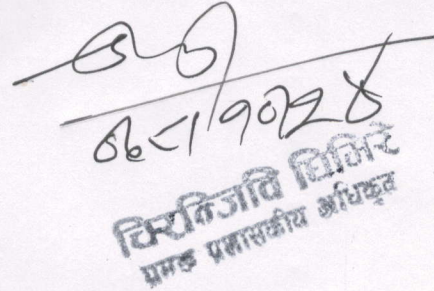 ०७८।१०।२४
चिरन्जिवि घिमिरे
प्रमुख प्रशासकीय अधिकृत